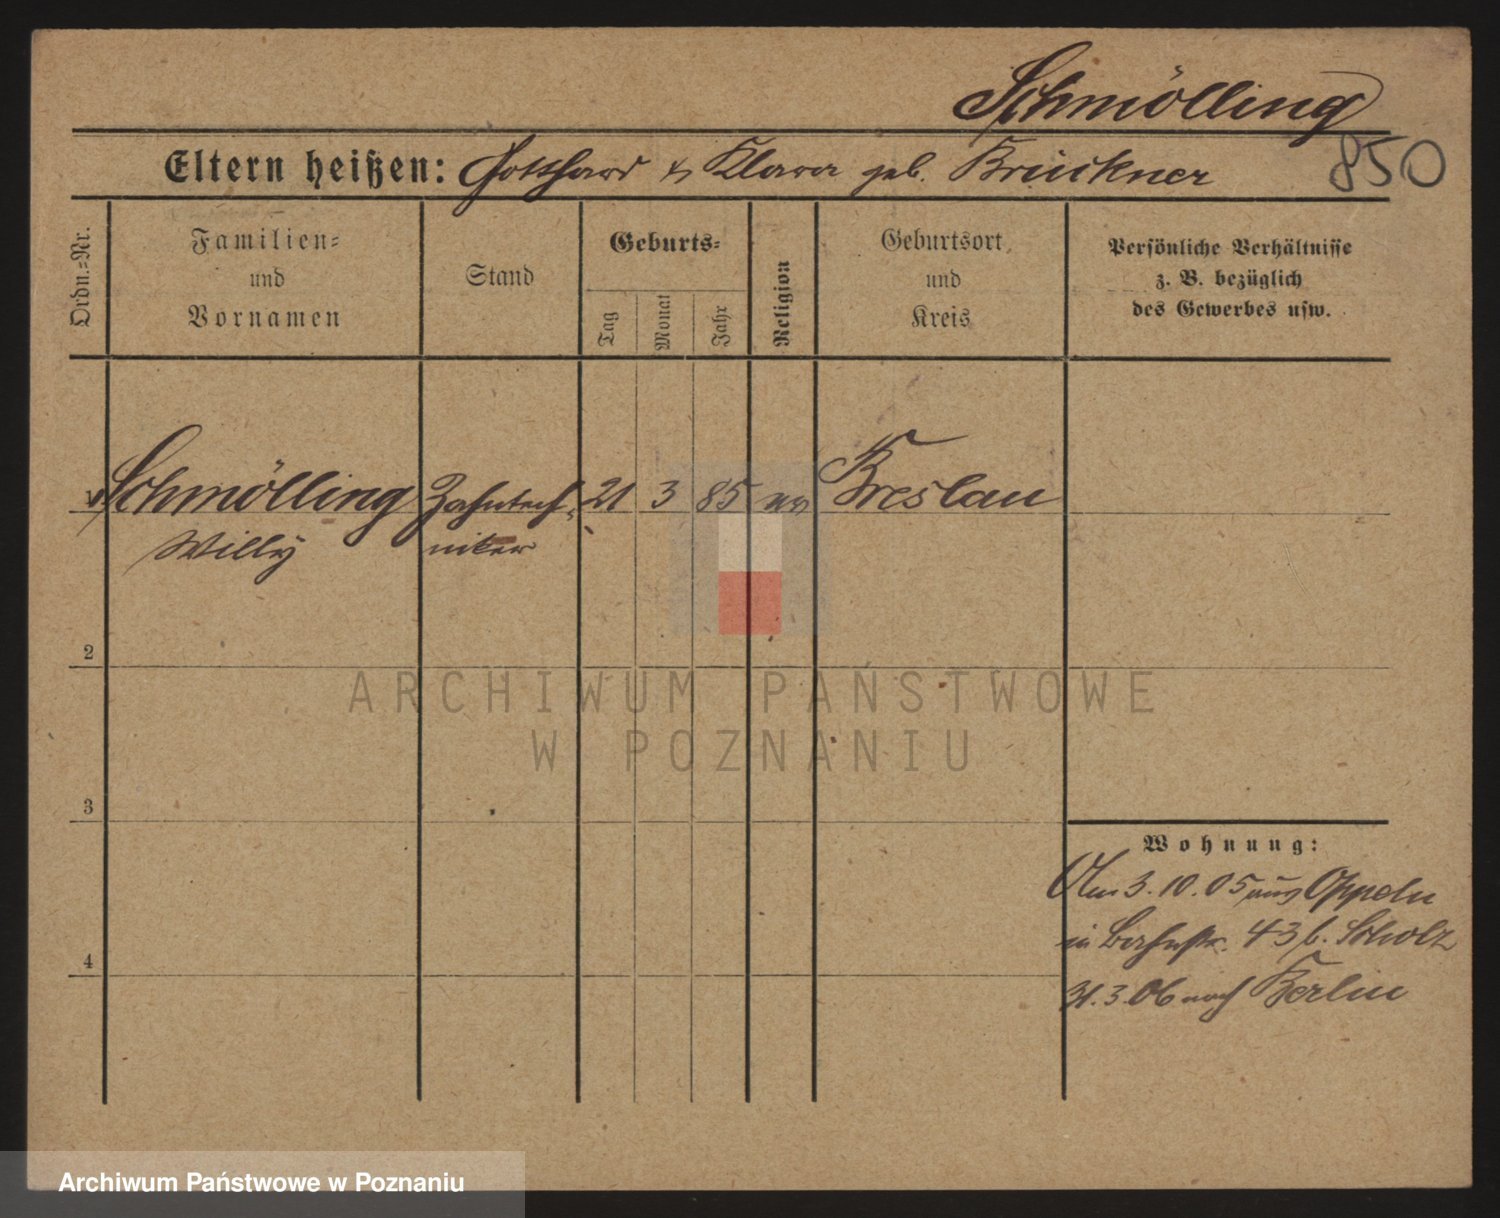 Schmölling
Eltern heißen: Gotthard & Klara geb. Brückner
850
Ordn.-Nr.
Familien-
und
Vornamen
Stand
Geburts-
Tag
Monat
Jahr
Religion
Geburtsort
und
Kreis
Persönliche Verhältnisse
z. B. bezüglich
des Gewerbes usw.
Schmölling Zahntech- 21 3 85 ev Breslau
Willy niker
2
ARCHIWUM PAŃSTWOWE
W POZNANIU
3
Wohnung:
Am 3.10.05 aus Oppeln
in Bahnstr. 43 b. Scholz
4
31.3.06 nach Berlin
Archiwum Państwowe w Poznaniu